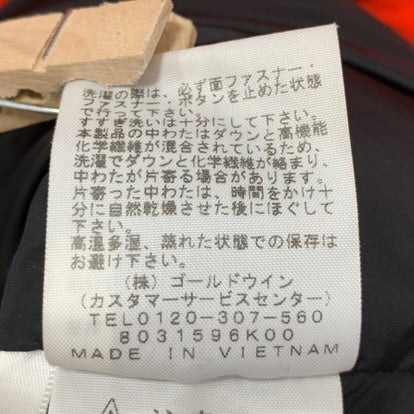 洗濯の際は、必ず面ファスナー・
ファスナー・ボタンを止めた状態
で行って下さい。
すすぎ洗いは十分にして下さい。
本製品の中わたはダウンと高機能
化学繊維が混合されているため、
洗濯でダウンと化学繊維が絡まり、
中わたが片寄る場合があります。
片寄った中わたは、時間をかけ十
分に自然乾燥させた後にほぐして
下さい。
高温多湿、蒸れた状態での保存は
お避け下さい。
(株)ゴールドウイン
(カスタマーサービスセンター)
TEL0120-307-560
8031596K00
MADE IN VIETNAM